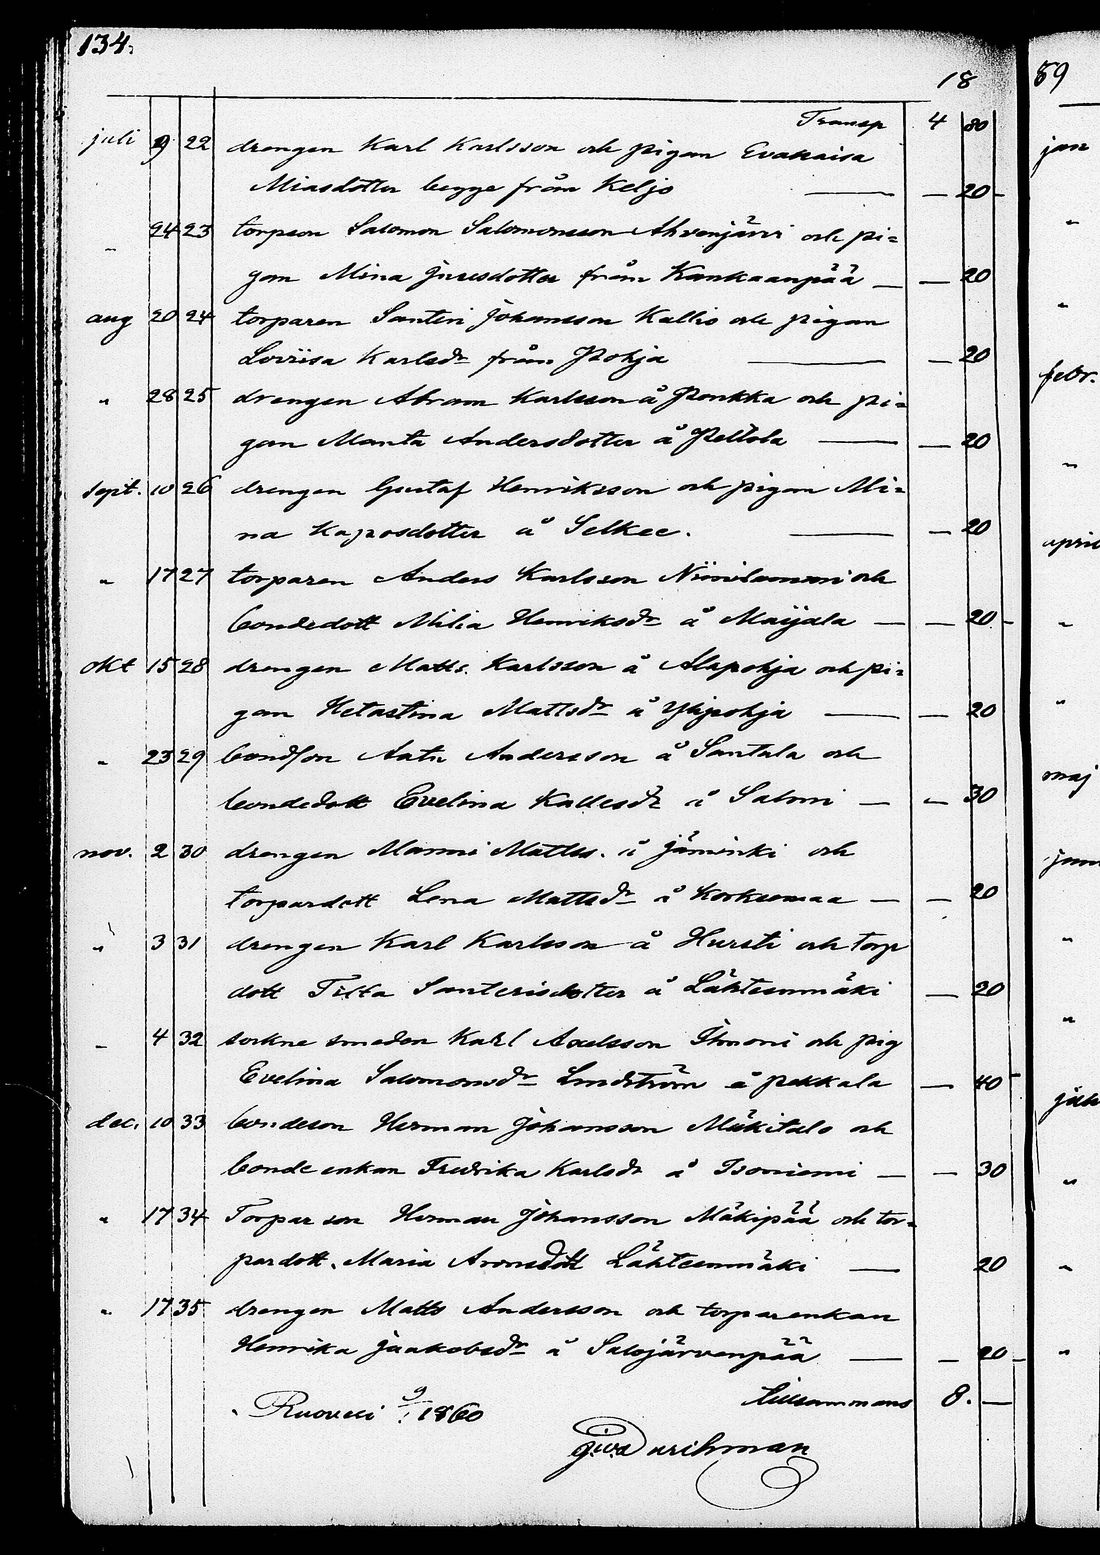 134.
18
Transp 4 80
juli 9 22 drengen Karl Karlsson och pigan Evakaisa
Miasdotter begge från Keljo — 20
" 24 23 torpson Salomon Salomonsson Ahvenjärvi och pi=
gan Mina Juresdotter från Kankaanpää — 20
aug 20 24 torparen Santeri Johansson Kallio och pigan
Loviisa Karlsdr från Pohja — 20
" 28 25 drengen Abram Karlsson å Penkka och pi=
gan Manta Andersdotter å Peltola — 20
sept. 10 26 drengen Gustaf Henriksson och pigan Mi=
na Kaposdotter å Selkee. — 20
" 17 27 torparen Anders Karlsson och
bondedott Milia Henriksdr å Maijala — 20
okt 15 28 drengen Matts Karlsson å Alapohja och pi=
gan Hetastina Mattsdr å Ylipohja — 20
" 23 29 bondson Aatu Andersson å Santala och
bondedott Evelina Kallesdr å Salmi — 30
nov. 2 30 drengen Manni Mattss. å Jäminki och
torpardott Lena Mattsdr å Korkeemaa — 20
" 3 31 drengen Karl Karlsson å Hursti och torp
dott Santerisdotter å Lähteenmäki — 20
" 4 32 sockne smeden Karl Axelsson och pig
Evelina Salomonsdr Lindström å Pekkala — 40
dec. 10 33 bondeson Herman Johansson Mäkitalo och
bonde enkan Fredrika Karlsdr å Isoniemi — 30
" 17 34 Torparson Herman Johansson Mäkipää och tor=
pardott. Maria Aronsdott Lähteenmäki — 20
" 17 35 drengen Matts Andersson och torparenkan
Henrika Jaakobsdr å Salojärvenpää — 20
Tillsammans 8. —
Ruovesi 9/1 1860
59
jan
"
"
febr.
"
april
"
"
maj
juni
"
"
juli
"
"
"